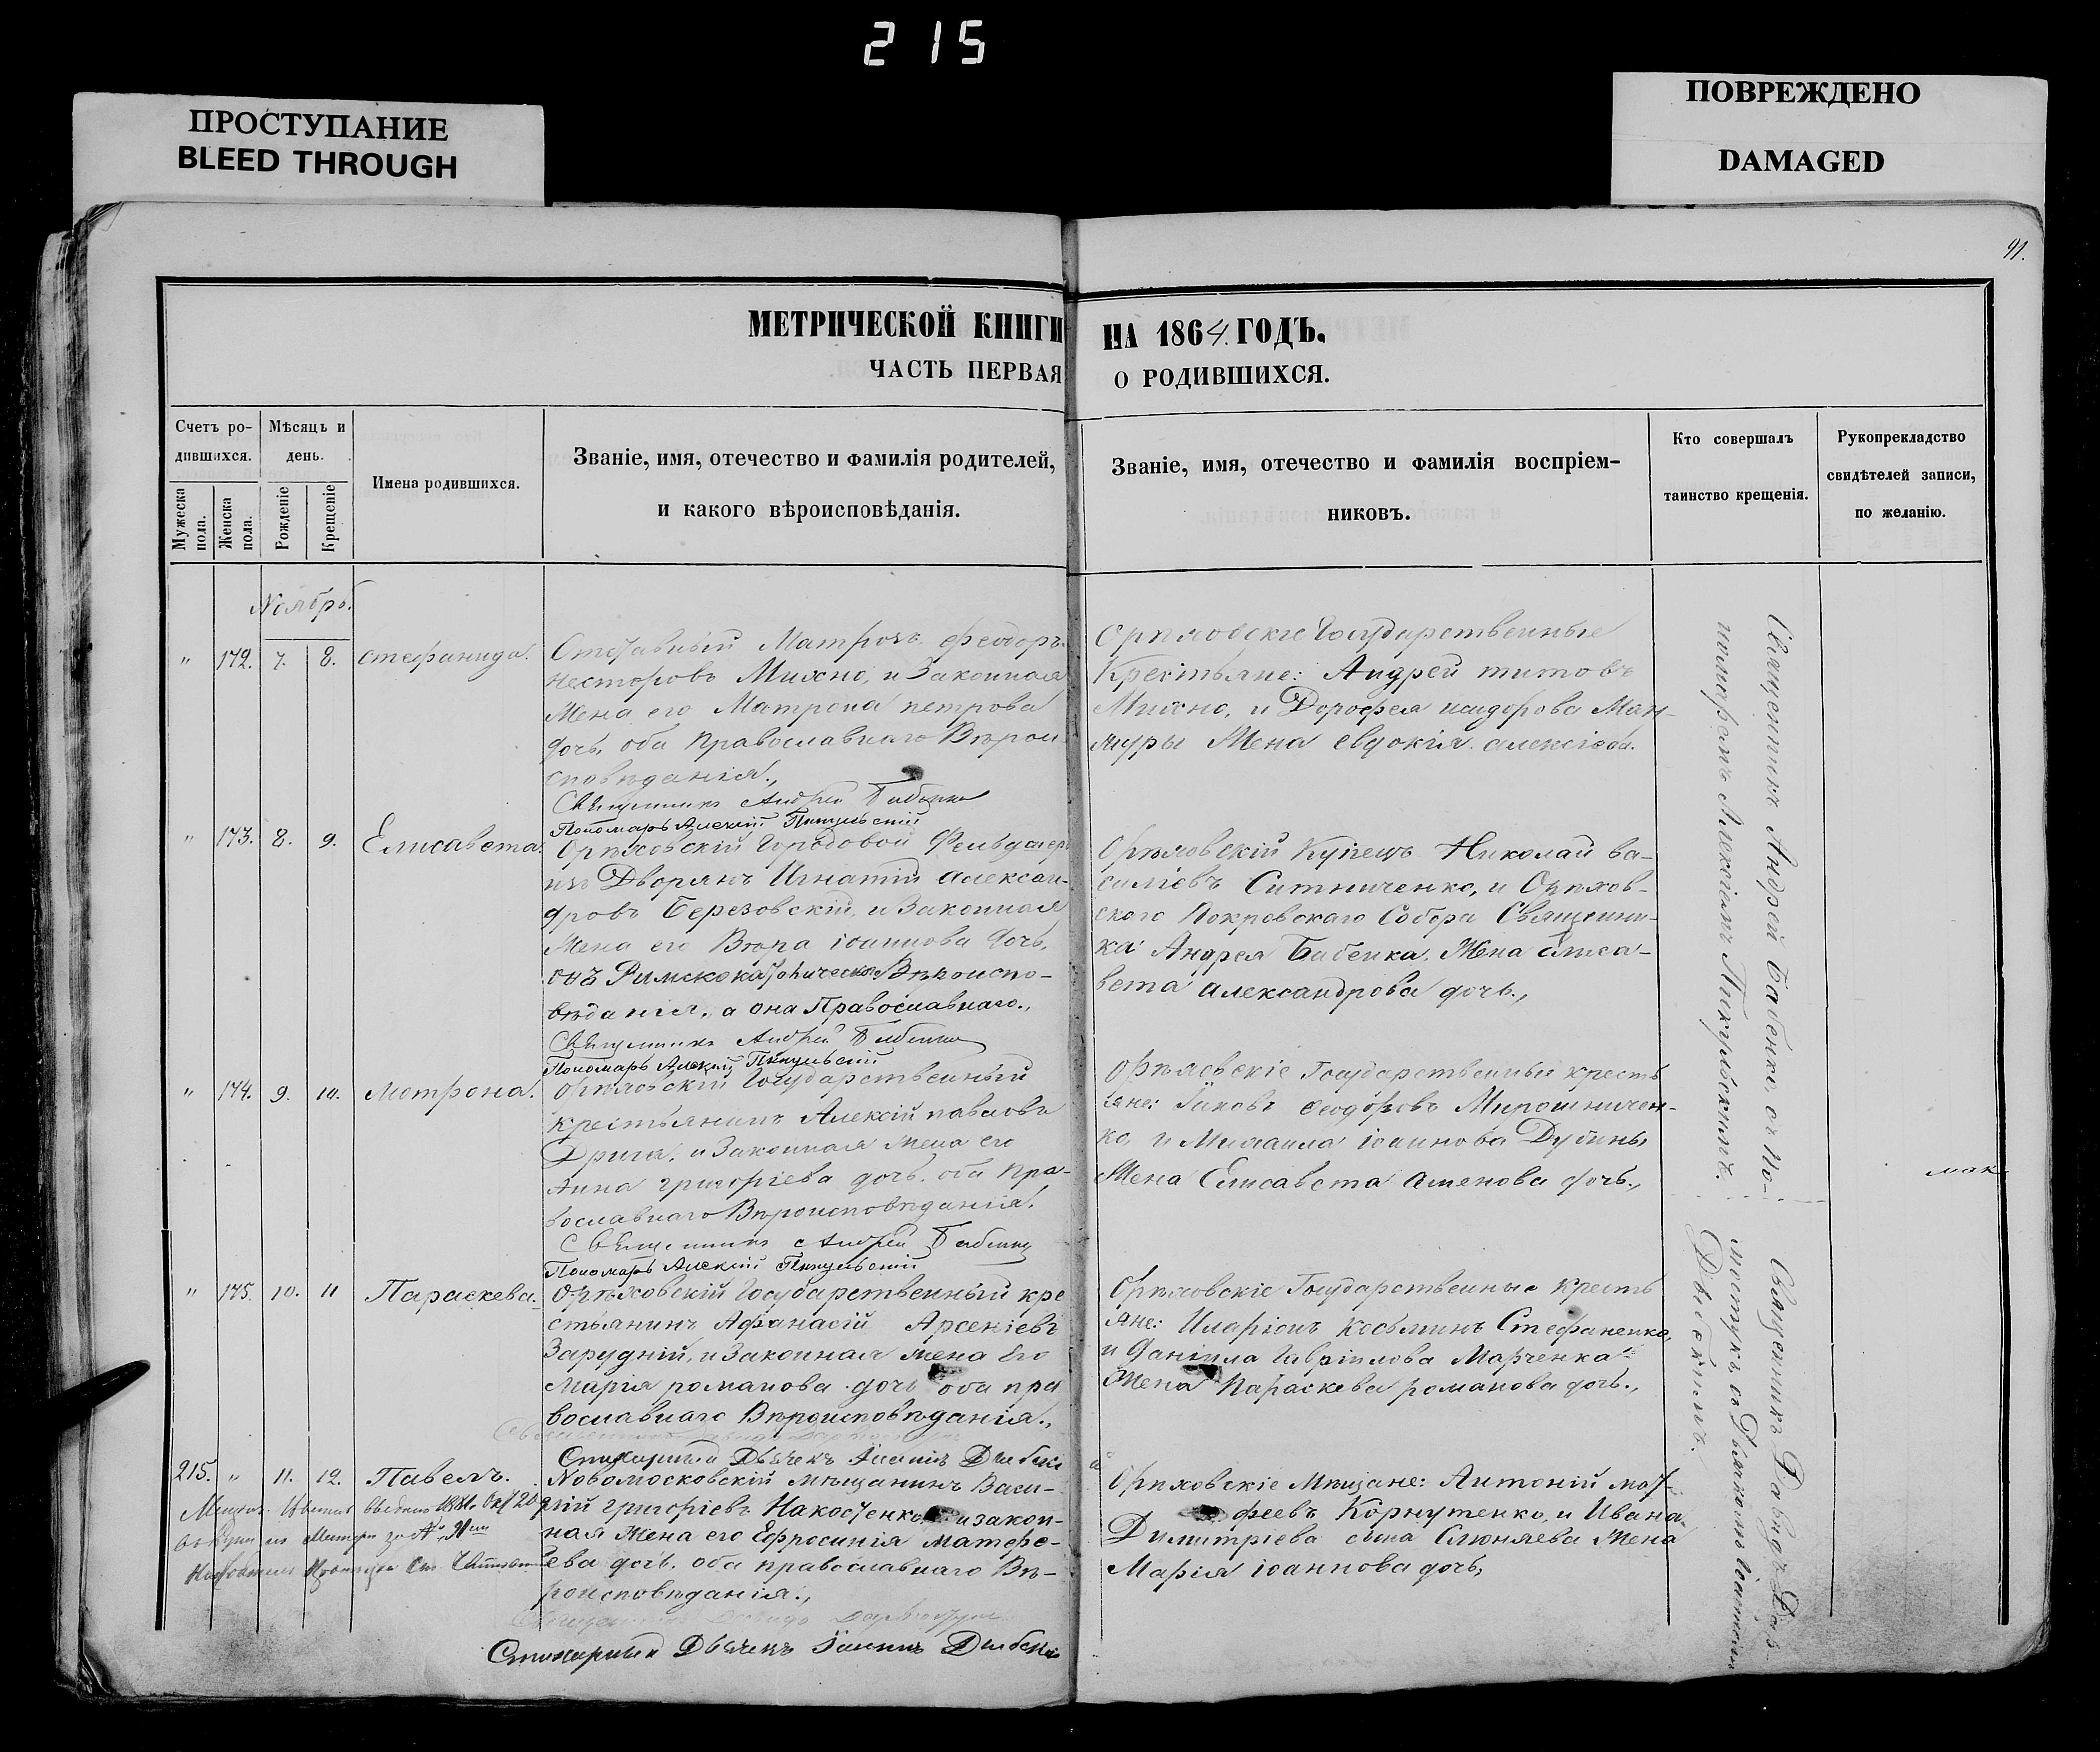 215
ПРОСТУПАНИЕ
BLEED THROUGH
ПОВРЕЖДЕНО
DAMAGED
91.
МЕТРИЧЕСКОЙ КНИГИ НА 1864. ГОДЪ.
ЧАСТЬ ПЕРВАЯ О РОДИВШИХСЯ.
Счетъ ро-
дившихся.
Мужеска пола.
Женска пола.
Мѣсяцъ и
день.
Рожденіе
Крещеніе
Имена родившихся.
Званіе, имя, отечество и фамилія родителей,
и какого вѣроисповѣданія.
Званіе, имя, отечество и фамилія воспріем-
никовъ.
Кто совершалъ
таинство крещенія.
Рукоприкладство
свидѣтелей записи,
по желанію.
Ноябрь.
" 172. 7. 8. Стефанида.
Отставный Матрозъ Феодоръ
Несторовъ Михно, и Законная
Жена его Матрона Петрова
дочь, оба Православнаго Вѣрои-
сповѣданія.,
Священникъ Андрей Бабенко
Пономарь Алексій Пикульскій
Орѣховскіе Государственные
Крестьяне: Андрей Титовъ
Михно, и Дорофея Исидорова Ман-
журы Жена Евдокія Алексіева.
" 173. 8. 9. Елисавета.
Орѣховскій Городовой Фельдшеръ
изъ Дворянъ Игнатій Алексан-
дровъ Березовскій, и Законная
Жена его Вѣра Іоаннова дочь,
онъ Римскокатолическаго Вѣроиспо-
вѣданія, а она Православнаго.,
Священникъ Андрей Бабенко
Пономарь Алексій Пикульскій
Орѣховскій Купецъ Николай Ва-
силіевъ Ситниченко, и Орѣхов-
скаго Покровскаго Собора Священни-
ка Андрея Бабенка, Жена Елиса-
вета Александрова дочь.,
" 174. 9. 10. Мотрона.
Орѣховскій Государственный
крестьянинъ Алексій Павловъ
Дрига, и Законная Жена его
Анна Григоріева дочь, оба Пра-
вославнаго Вѣроисповѣданія.
Священникъ Андрей Бабенко
Пономарь Алексій Пикульскій
Орѣховскіе Государственный кресть
яне: Іаковъ Феодоровъ Мирошничен-
ко, и Михаила Іоаннова Дубины
Жена Елисавета Семенова дочь.,
" 175. 10. 11 Параскева.
Орѣховскій Государственный кре
стьянинъ Афанасій Арсеніевъ
Зарудній, и Законная Жена Его
Марія Романова дочь оба пра
вославнаго Вѣроисповѣданія.,
Стихарный Дьячекъ Іоаннъ
Орѣховскіе Государственные кресть
яне: Иларіонъ Косьминъ Стефаненко,
и Даніила Гавріилова Марченка
Жена Параскева Романова дочь.,
215. " 11. 12. Павелъ.
Новомосковскій мѣщанинъ Васи-
лій Григоріевъ Накостенко, и закон-
ная Жена его Ефросинія Матфе-
ева дочь, оба православнаго Вѣ-
роисповѣданія.,
Стихарный Дьячекъ Іоаннъ
Орѣховскіе Мѣщане: Антоній Мат-
феевъ Корнутенко, и Ивана
Димитріева сына Слюняева Жена
Марія Іоаннова дочь,
Священникъ Андрей Бабенко, съ по-
номаремъ Алексіемъ Пикульскимъ.
Священникъ Давидъ